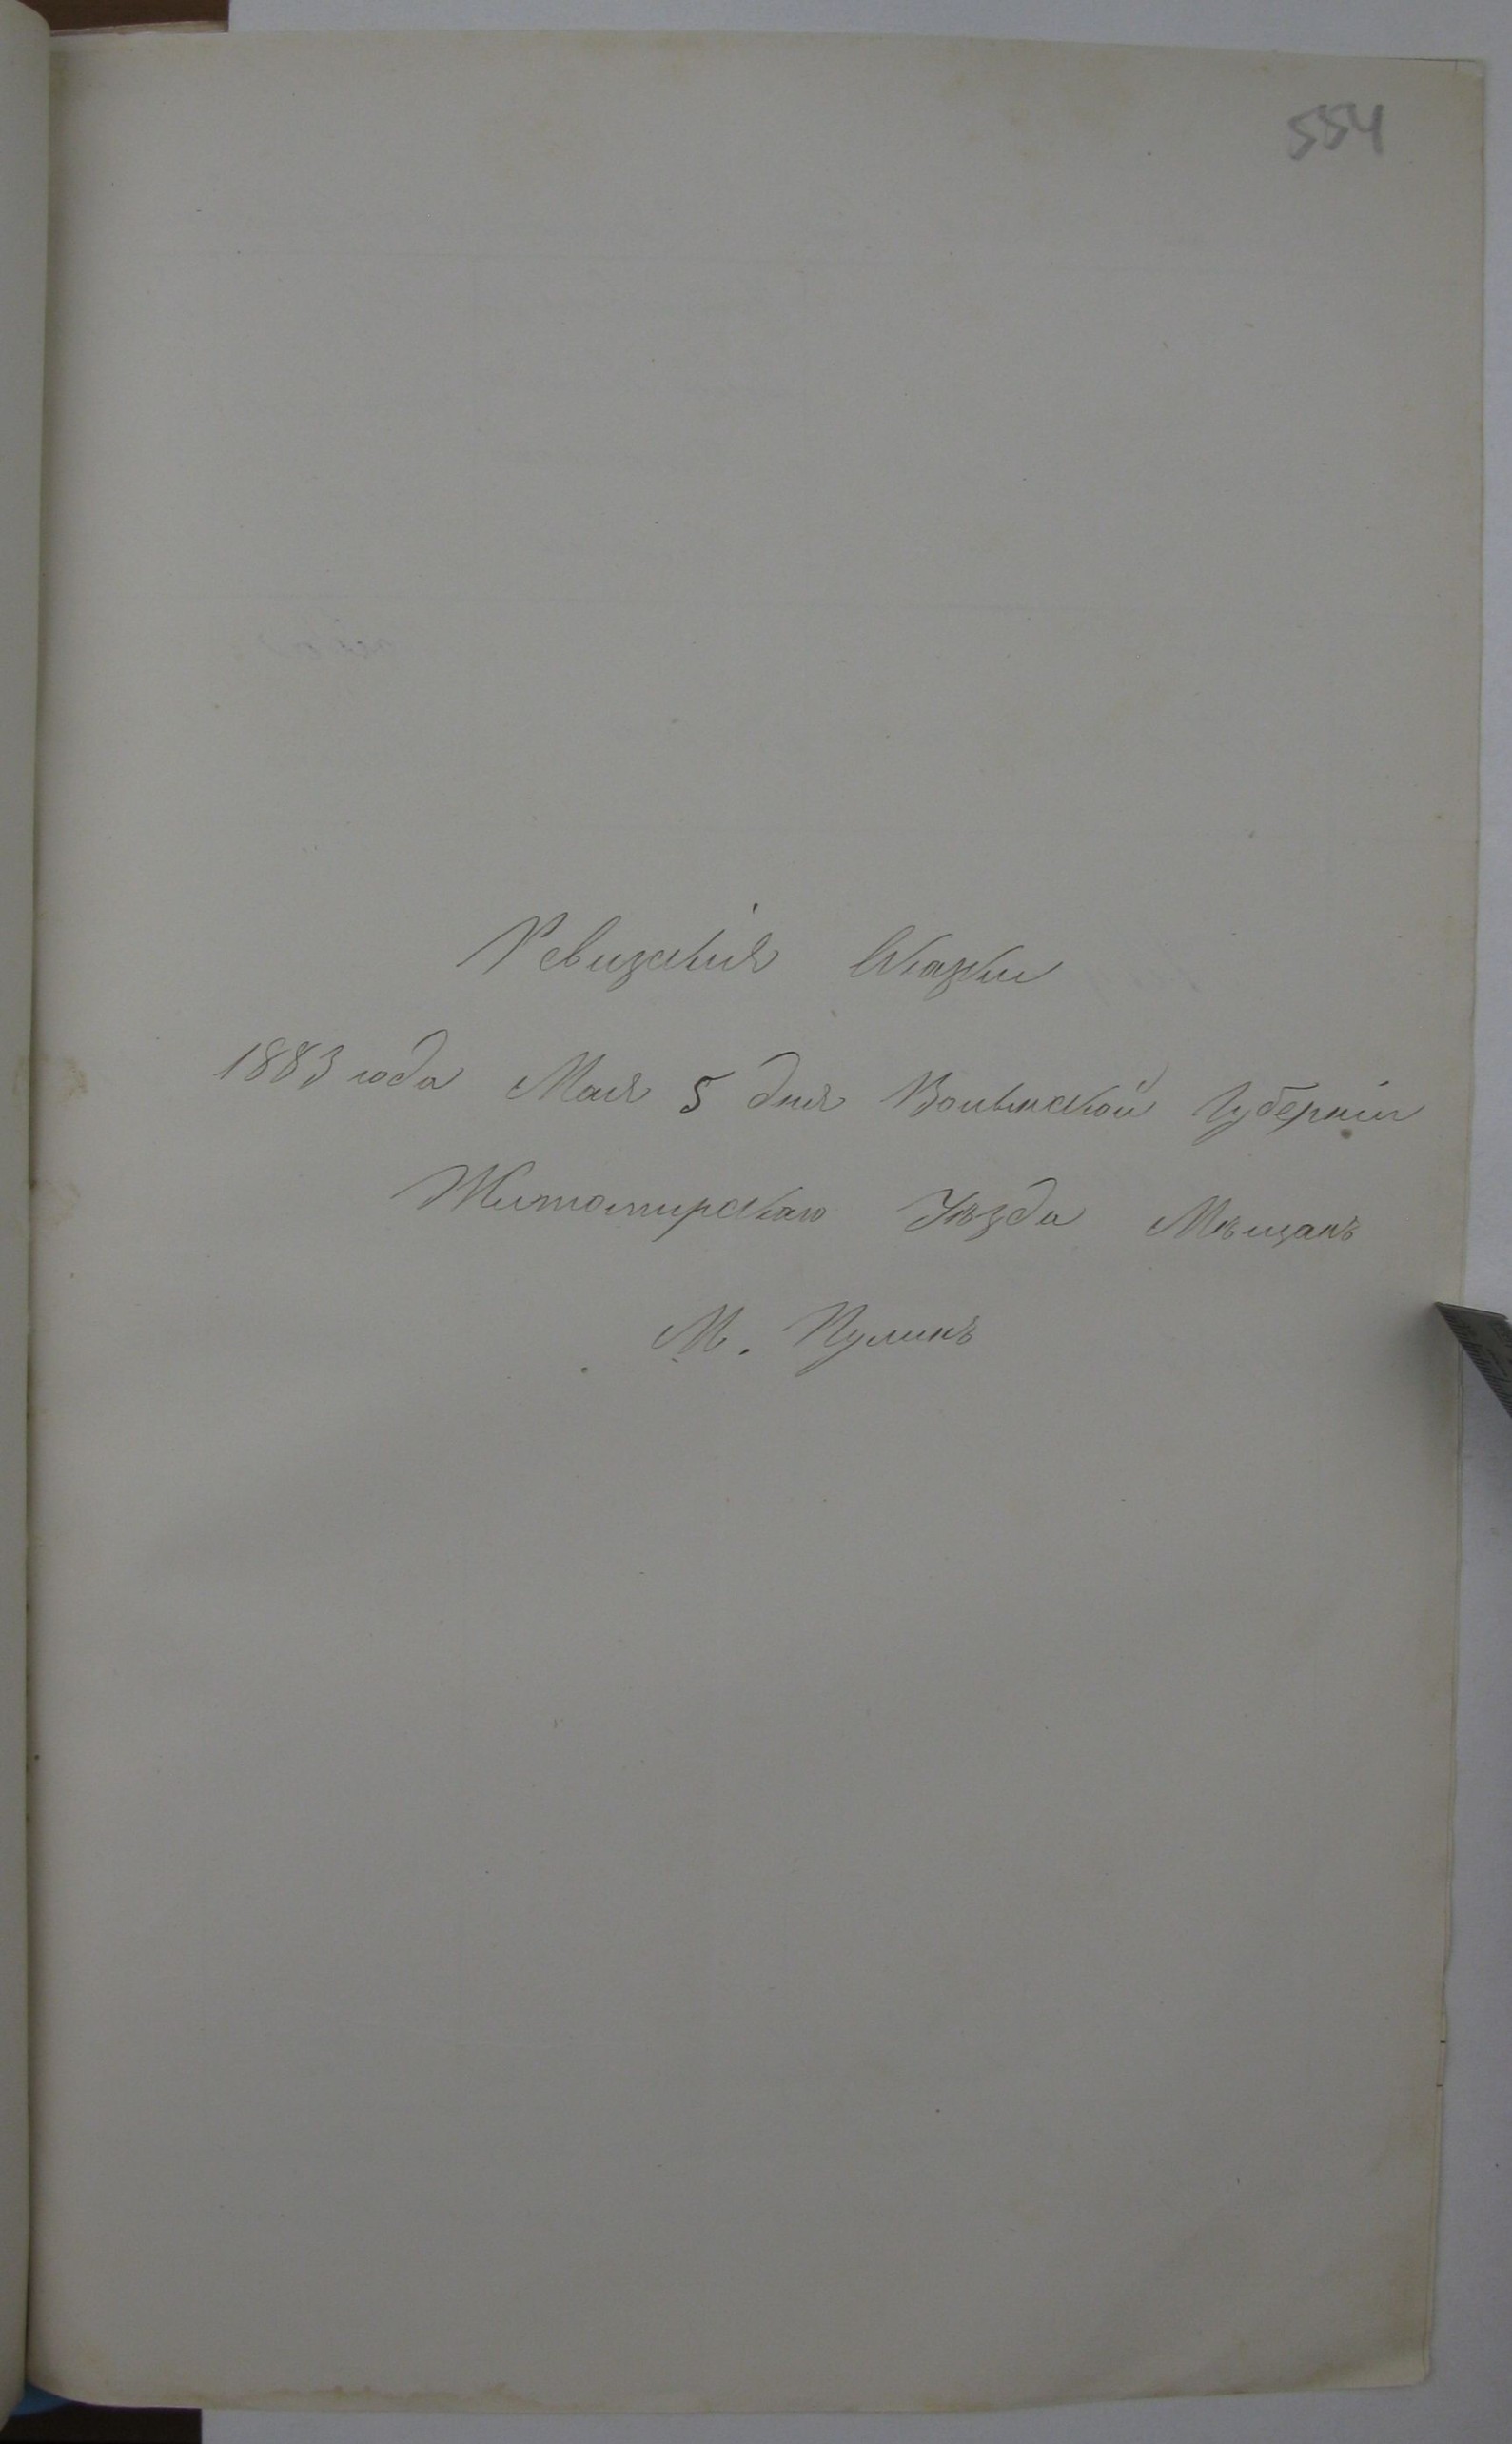 554
Ревизскія Сказки
1883 года Мая 5 дня Волынской Губерніи
Житомирскаго Уѣзда Мѣщанъ
М. Пулинъ